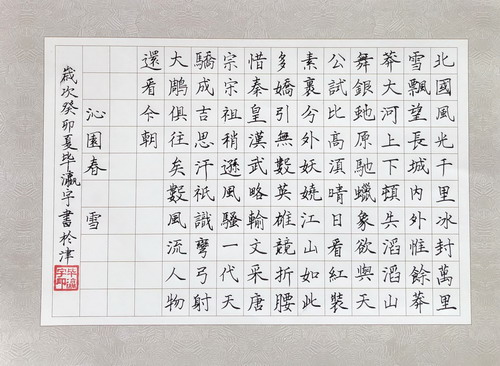 北國風光千里冰封萬里
雪飄望長城内外惟餘莽
莽大河上下頓失滔滔山
舞銀虵原馳蠟象欲與天
公試比高湏晴日看紅裝
素裹兮外妖嬈江山如此
多嬌引無數英雄競折腰
惜秦皇漢武略輸文采唐
宗宋祖稍遜風騷一代天
驕成吉思汗祇識彎弓射
大鵰俱往矣數風流人物
還看今朝
沁園春 雪
歲次癸卯夏毕瀛宇書於津